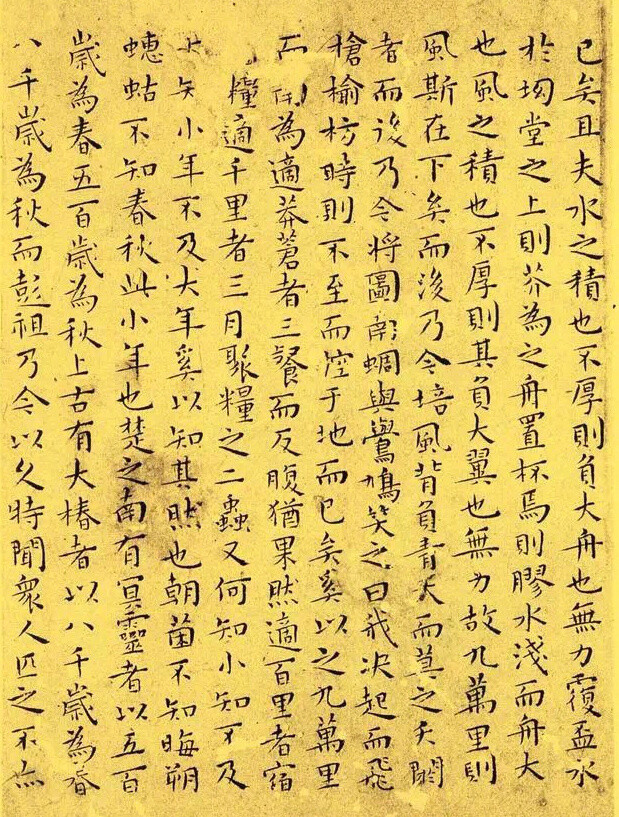 已矣且夫水之積也不厚則負大舟也無力覆盃水
於坳堂之上則芥為之舟置杯焉則膠水淺而舟大
也風之積也不厚則其負大翼也無力故九萬里則
風斯在下矣而後乃今培風背負青天而莫之夭閼
者而後乃今將圖南蜩與鷽鳩笑之曰我決起而飛
槍榆枋時則不至而控于地而已矣奚以之九萬里
而南為適莽蒼者三餐而反腹猶果然適百里者宿
糧適千里者三月聚糧之二蟲又何知小知不及
大知小年不及大年奚以知其然也朝菌不知晦朔
蟪蛄不知春秋此小年也楚之南有冥靈者以五百
歲為春五百歲為秋上古有大椿者以八千歲為春
八千歲為秋而彭祖乃今以久時聞衆人匹之不亦